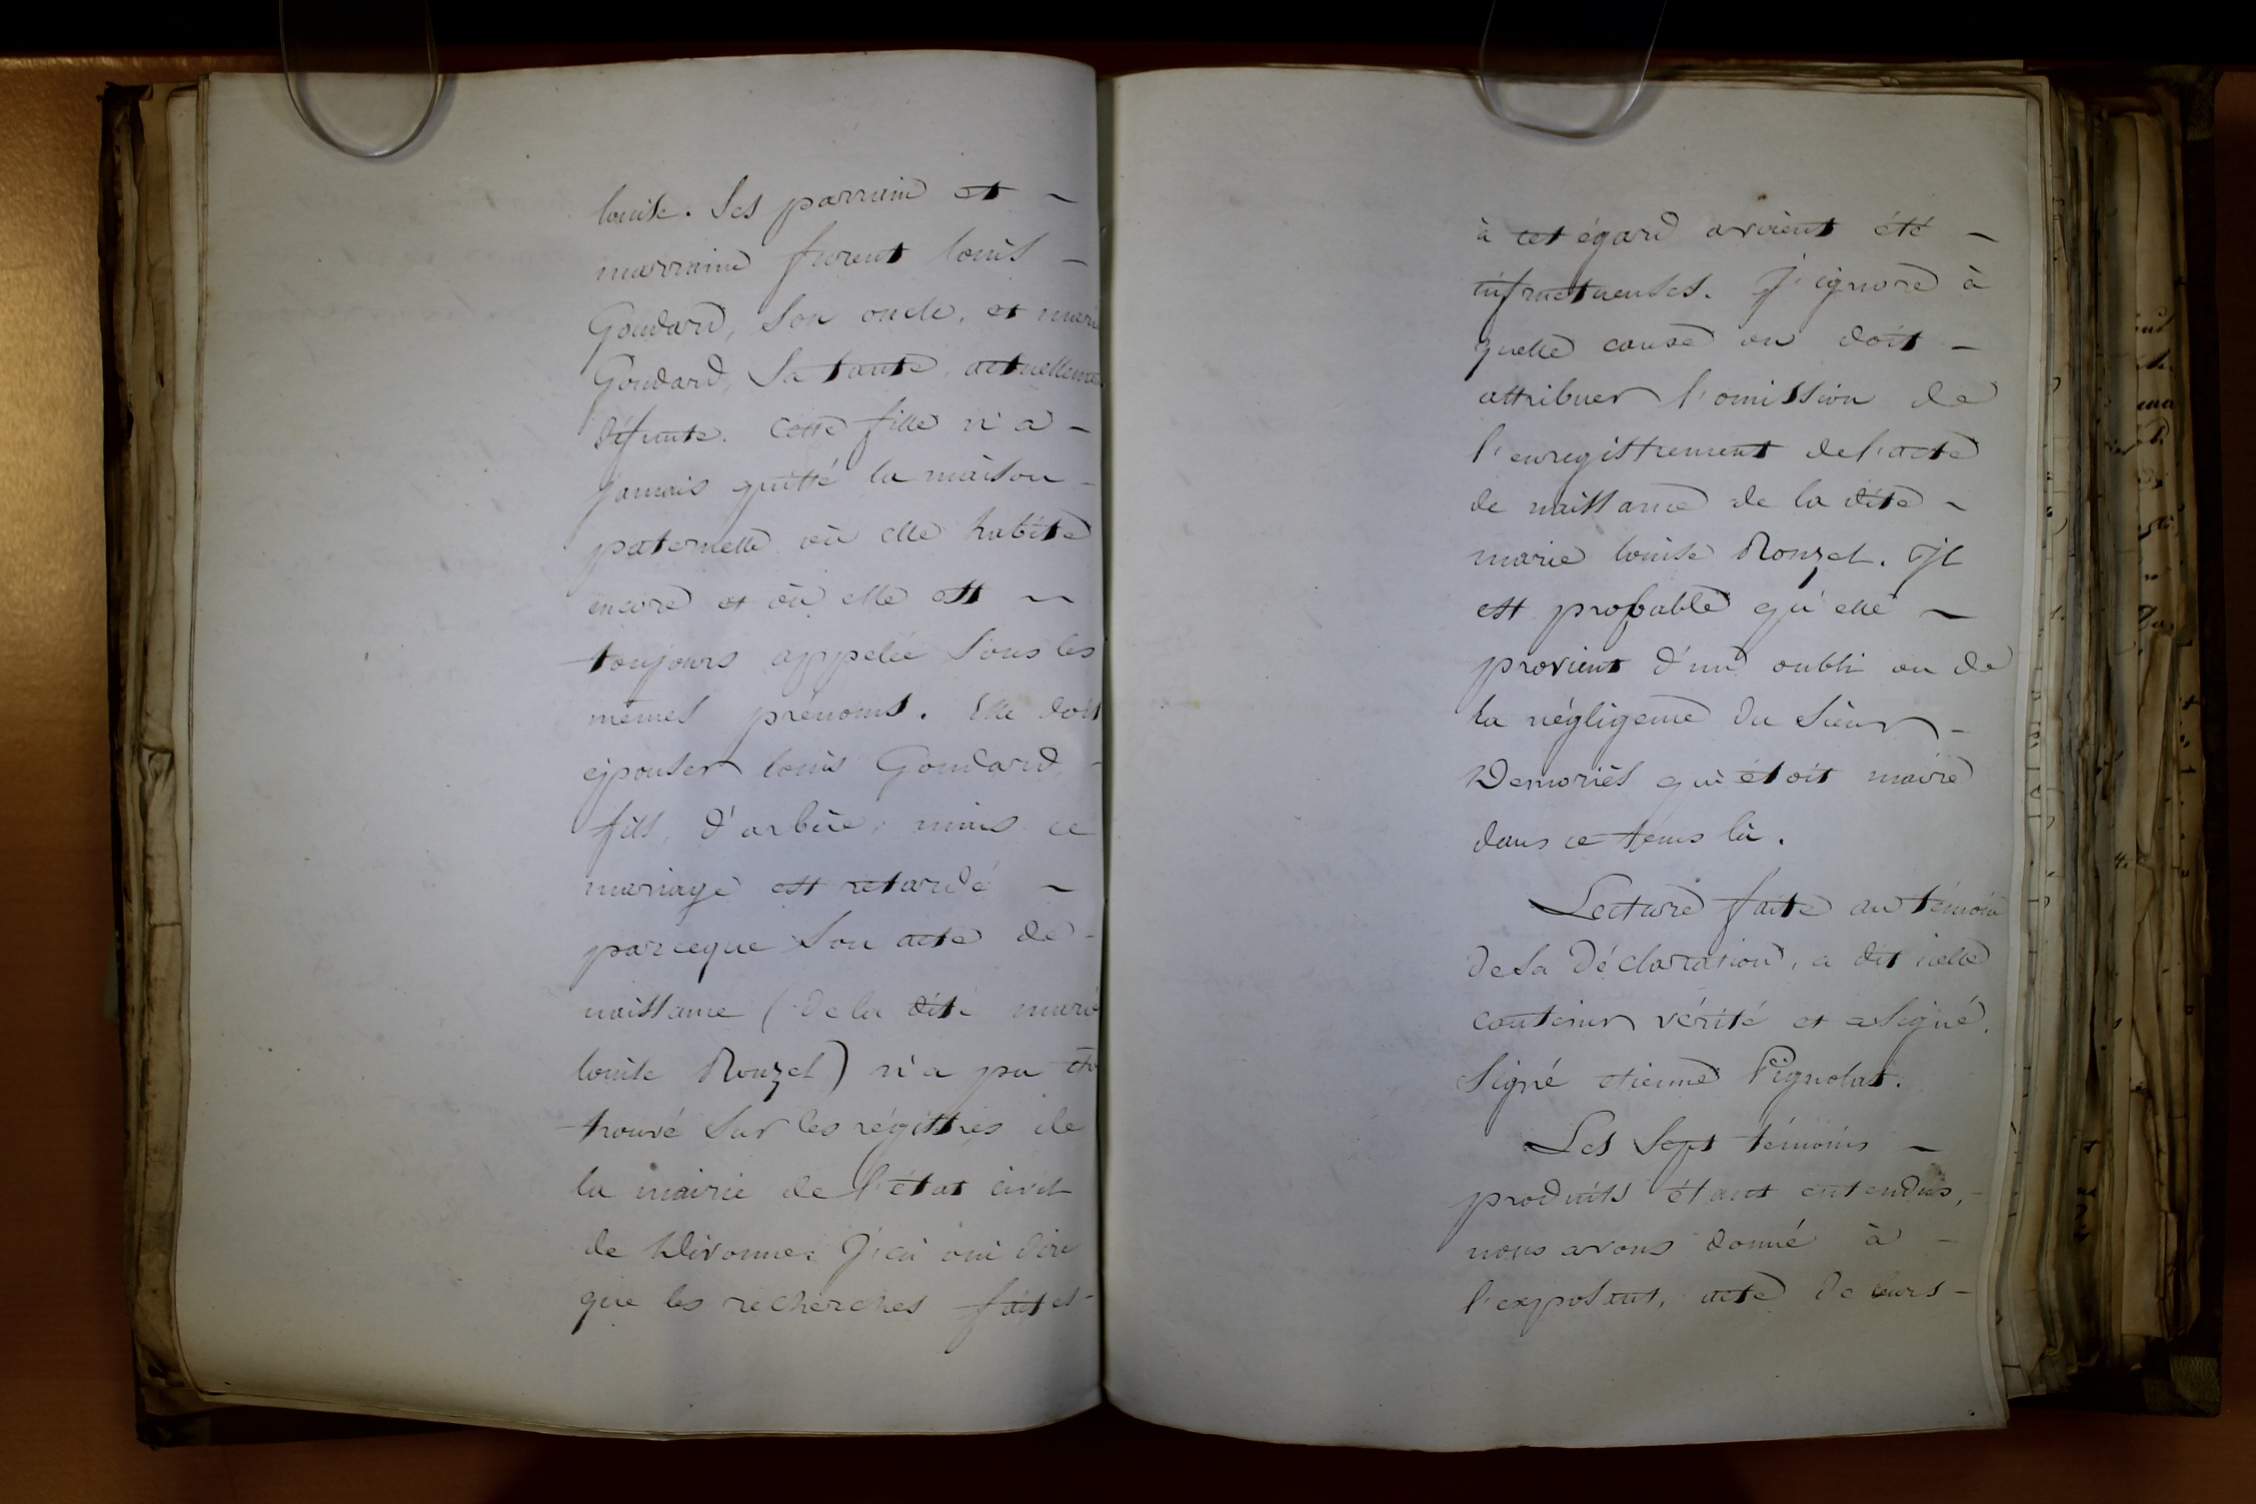 louise. Ses parrain et ~
marraine furent louis -
Goudard, son oncle, et marie
Goudard, sa tante, actuellement
défunte. Cette fille n'a -
jamais quitté la maison -
paternelle où elle habite
encore et où elle est ~
toujours appelée sous les
mêmes prénoms. Elle doit
épouser louis Goudard -
fils, d'arbère; mais ce
mariage est retardé ~
parceque son acte de -
naissance (de la dite marie
louise Rouzet) n'a pu être
trouvé sur les régistres de
la mairie de l'état civil
de Divonne. J'ai oui dire
que les recherches faites -
à cet égard avoient été -
infructueuses. J'ignore à
quelle cause on doit -
attribuer l'omission de
l'enregistrement de l'acte
de naissance de la dite -
marie louise Rouzet. Il
est probable qu'elle ~
provient d'un oubli ou de
la négligence du sieur -
Demoriès qui étoit maire
dans ce tems là.
Lecture faite au témoin
de sa déclaration, a dit icelle
contenir vérité et a signé.
Signé etienne Pignolat.
Les sept témoins -
produits étant entendus, -
nous avons donné à -
l'exposant, acte de leurs -